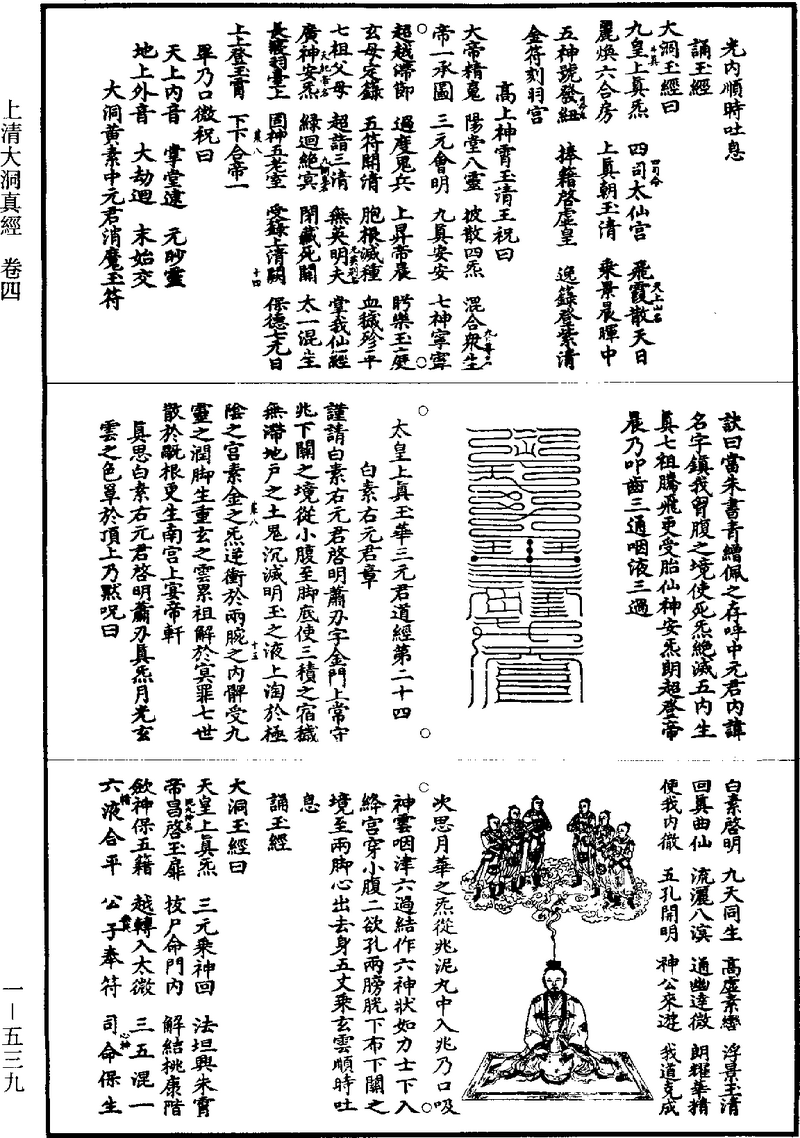 上清大洞真經　卷四
一－五三九
光內順時吐息
誦玉經
大洞玉經曰
九皇上真炁　四司太仙宮　飛霞散天日
麗煥六合房　上真朝玉清　乘景晨暉中
五神號發紐　捧籍啓虛皇　逸錄登紫清
金符刻羽宮
高上神霄玉清王祝曰
大帝精魂　陽堂八靈　披散四炁　混合衆生
帝一承圖　三元會明　九真安安　七神寧寧
超越滯節　過度鬼兵　上昇帝晨　眄樂玉庭
玄母定錄　五符開清　胞根滅種　血穢殄平
七祖父母　超詣三清　無英明夫　掌我仙經
廣神安炁　緣迴絕冥　閉藏死關　太一混生
長鍊羽臺上　固神五老室　受錄上清闕　保德七元日
上上登玉霄　下下合帝一
畢乃口微祝曰
天上內音　掌堂逮　元眇靈
地上外音　大劫迴　末始交
大洞黃素中元君消魔玉符
訣曰當朱書青繒佩之存呼中元君內諱
名字鎮我胃腹之境使死炁絕滅五內生
真七祖騰飛更受胎仙神安炁朗超登帝
晨乃叩齒三通咽液三過
太皇上真玉華三元君道經第二十四
白素右元君章
謹請白素右元君啓明蕭刅字金門上常守
兆下關之境從小腹至脚底使三積之宿穢
無滯地戶之土鬼沉滅明玉之液上淘於極
陰之宮素金之炁逆衝於兩腕之內髀受九
靈之潤脚生重玄之雲累祖解於冥罪七世
散於厩根更生南宮上宴帝軒
真思白素右元君啓明蕭刅真炁月光玄
雲之色罩於頂上乃默呪曰
白素啓明　九天同生　高虛素巒　浮景玉清
回真曲仙　流灑八溟　通幽達微　朗耀華精
使我內徹　五孔開明　神公來遊　我道克成
次思月華之炁從兆泥丸中入兆乃口吸
神雲咽津六過結作六神狀如力士下入
絳宮穿小腹二欲孔兩膀胱下布下關之
境至兩脚心出去身五丈乘玄雲順時吐
息
誦玉經
大洞玉經曰
天皇上真炁　三元乘神回　法坦興朱霄
帝昌啓玉扉　拔尸命門內　解結桃康階
斂神保五籍　越轉入太微　三五混一
六液合平　公子奉符　司命保生